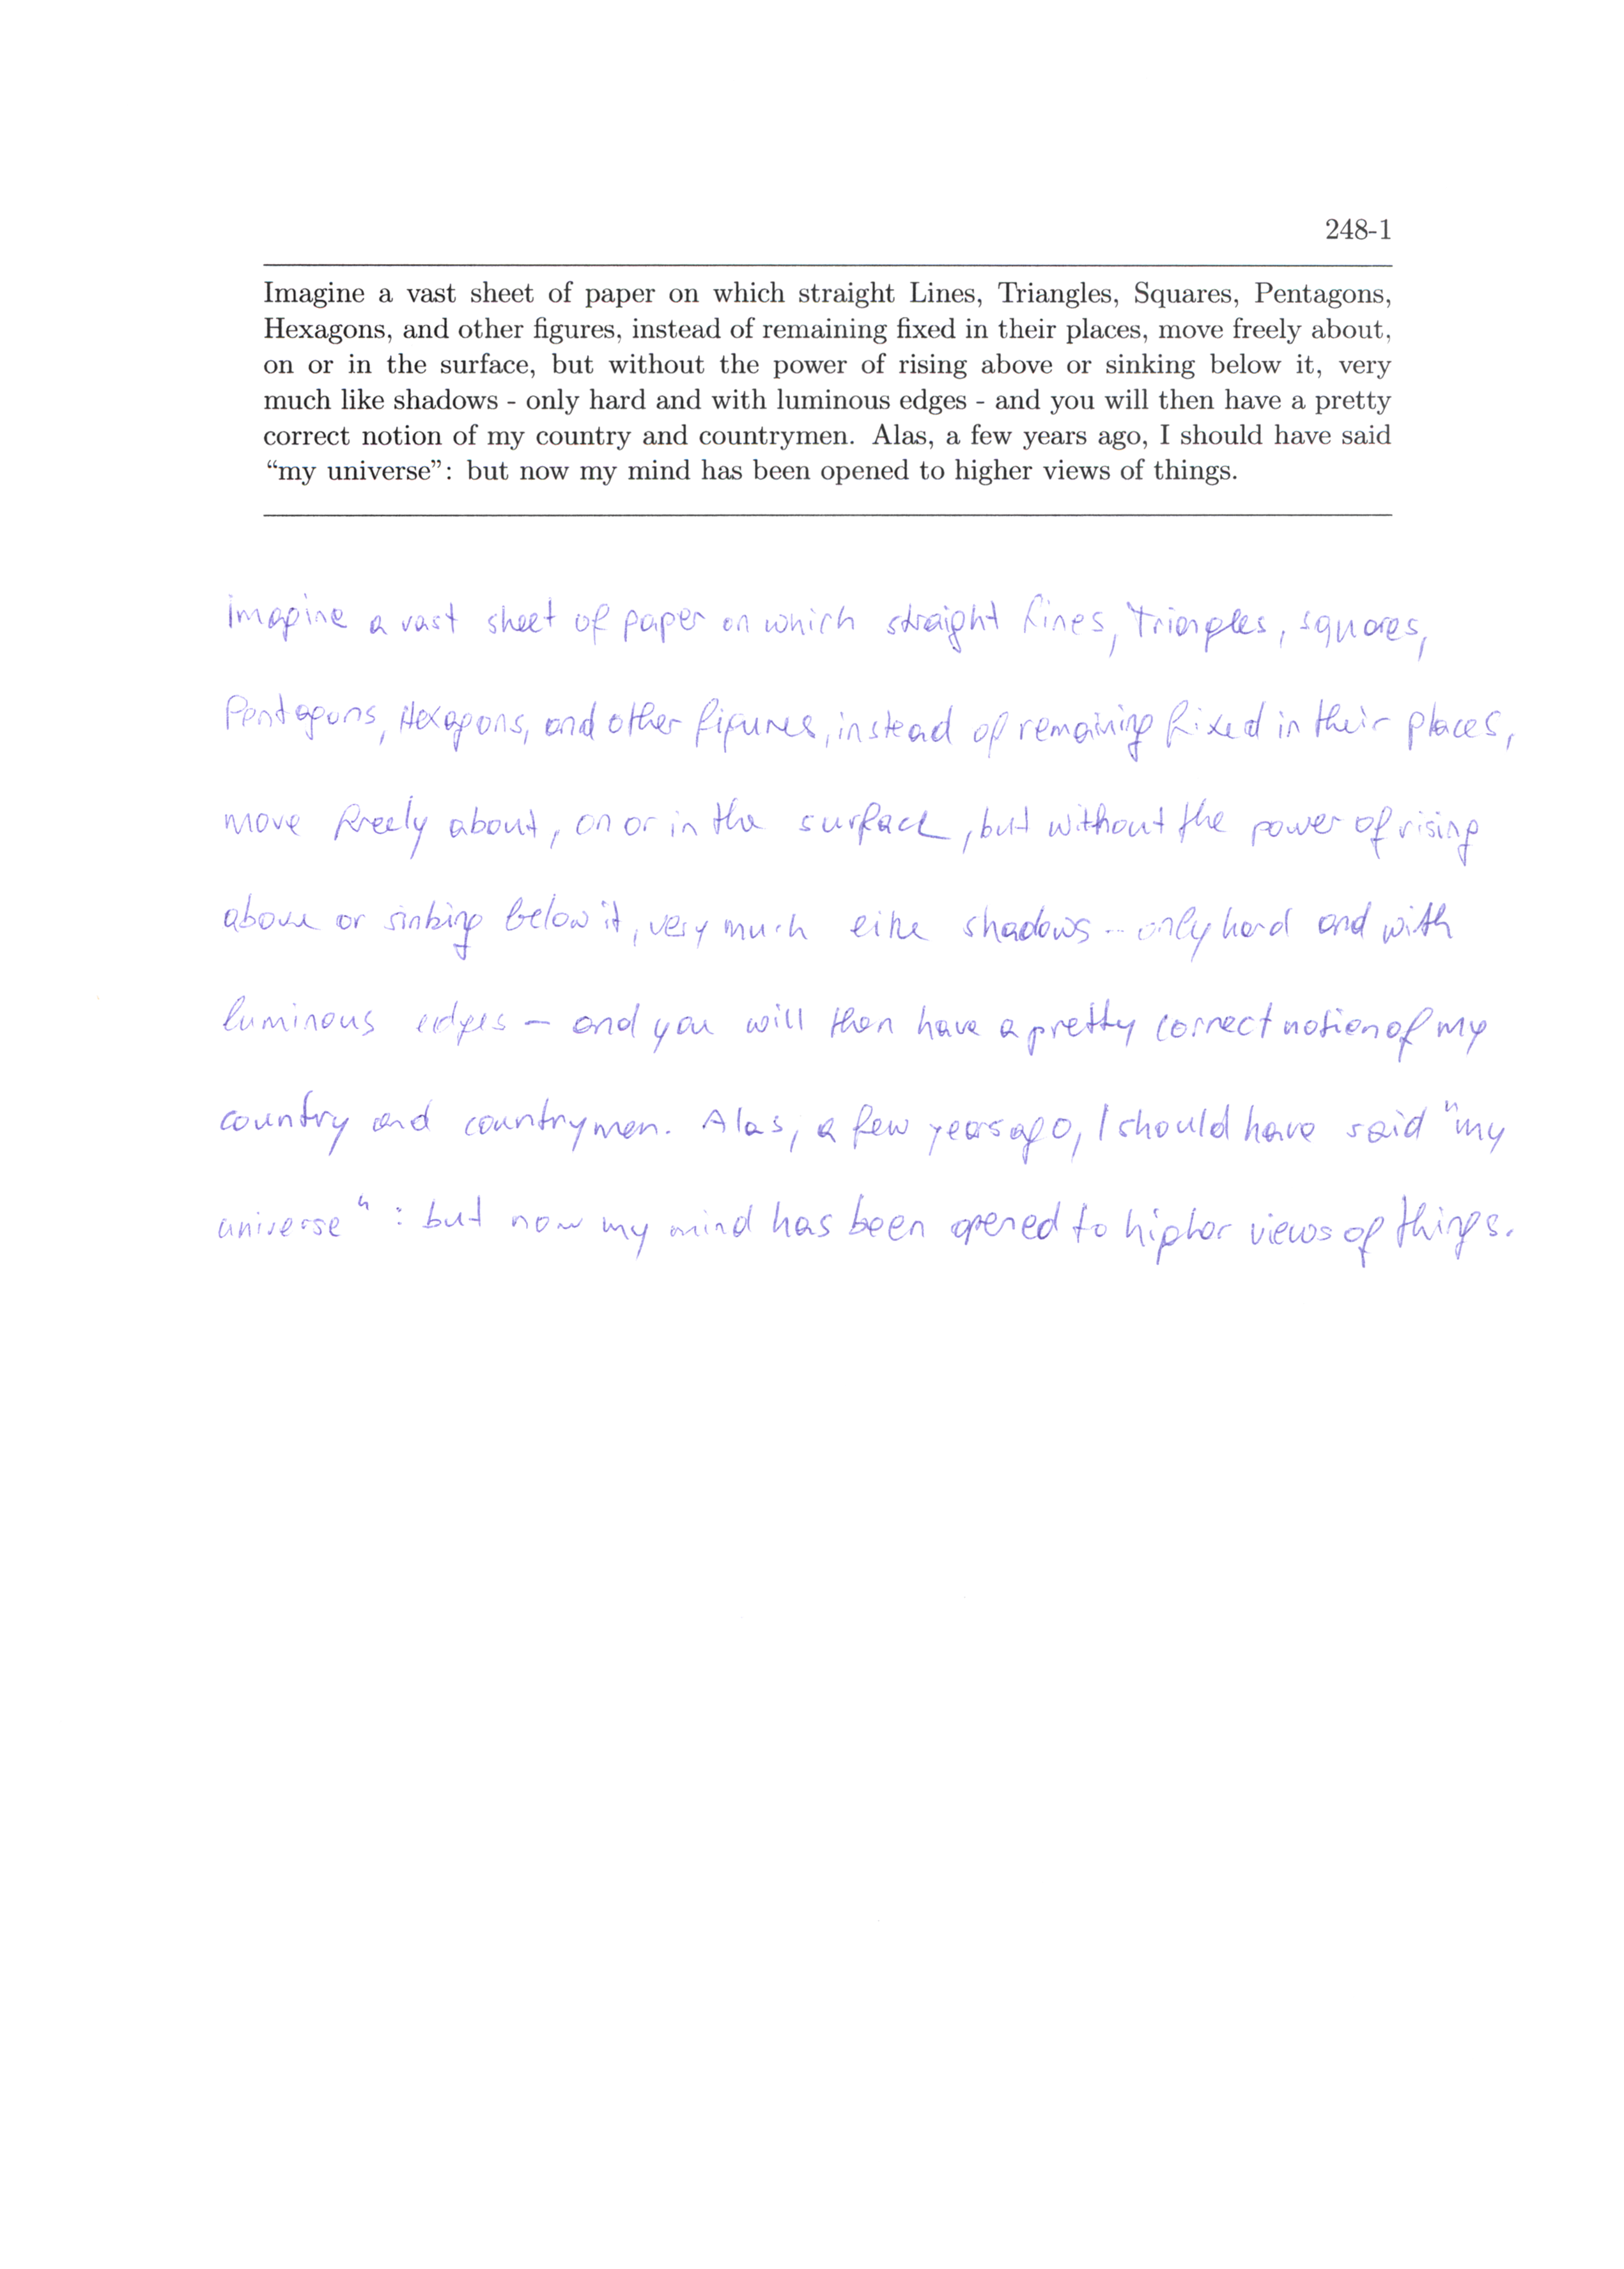 248-1
Imagine a vast sheet of paper on which straight Lines, Triangles, Squares, Pentagons,
Hexagons, and other figures, instead of remaining fixed in their places, move freely about,
on or in the surface, but without the power of rising above or sinking below it, very
much like shadows - only hard and with luminous edges - and you will then have a pretty
correct notion of my country and countrymen. Alas, a few years ago, I should have said
“my universe”: but now my mind has been opened to higher views of things.
Imagine a vast sheet of paper on which straight Lines, Triangles, squares,
Pentagons, Hexagons, and other figures, instead of remaining fixed in their places,
move freely about, on or in the surface, but without the power of rising
above or sinking below it, very much like shadows - only hard and with
luminous edges - and you will then have a pretty correct notion of my
country and countrymen. Alas, a few years ago, I should have said "my
universe": but now my mind has been opened to higher views of things.